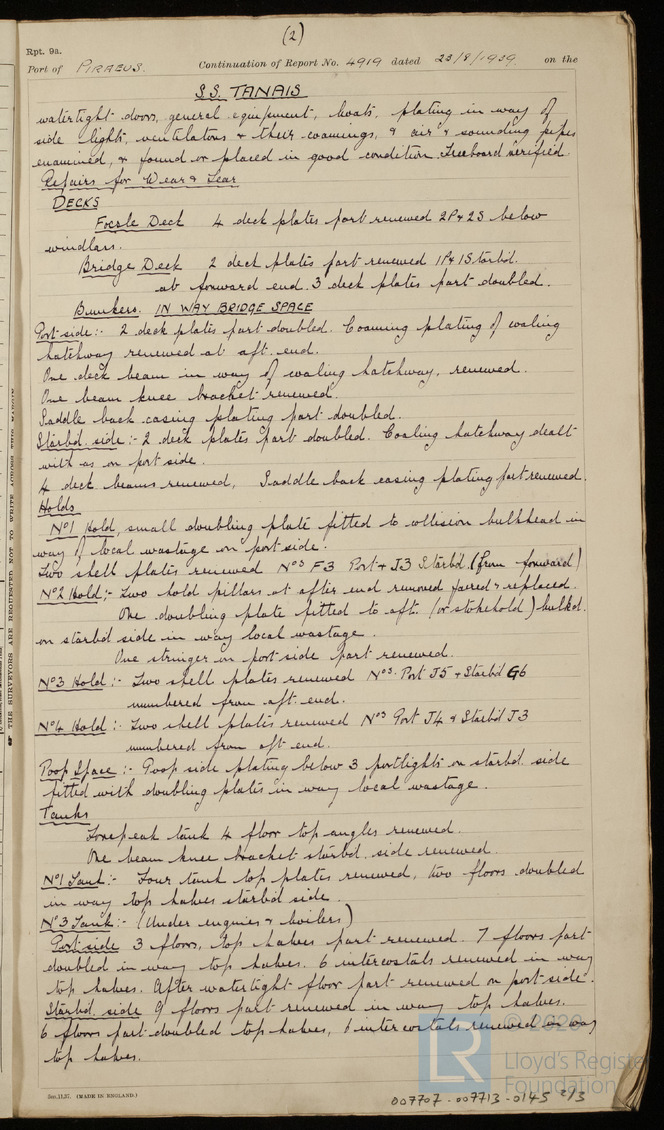 (2)
Rpt. 9a.
Port of PIRAEUS. Continuation of Report No. 4919 dated 23/8/1939. on the
S.S. TANAIS
watertight doors, general equipment, boats, plating in way of
side lights, ventilators & their coamings, & air & sounding pipes
examined, & found or placed in good condition. Freeboard verified.
Repairs for Wear & Tear
DECKS
Focsle Deck 4 deck plates part renewed 2P & 2S below
windlass.
Bridge Deck 2 deck plates part renewed 1P & 1Starbd.
at forward end. 3 deck plates part doubled.
Bunkers. IN WAY BRIDGE SPACE
Port side:- 2 deck plates part doubled. Coaming plating of coaling
hatchway renewed at aft end.
One deck beam in way of coaling hatchway, renewed.
One beam knee bracket renewed.
Saddle back casing plating part doubled.
Starbd. side:- 2 deck plates part doubled. Coaling hatchway dealt
with as on port side.
4 deck beams renewed, Saddle back casing plating part renewed.
Holds
No 1 Hold, small doubling plate fitted to collision bulkhead in
way of local wastage on port side.
Two shell plates renewed Nos F3 Port & J3 Starbd. (from forward)
No 2 Hold:- Two hold pillars at after end removed faired & replaced.
One doubling plate fitted to aft. (or stokehold) bulkd.
on starbd side in way local wastage.
One stringer on port side part renewed.
No 3 Hold:- Two shell plates renewed Nos. Port J5 & Starbd G6
numbered from aft. end.
No 4 Hold:- Two shell plates renewed Nos Port J4 & Starbd J3
numbered from aft end.
Poop Space:- Poop side plating below 3 portlights on starbd. side
fitted with doubling plates in way local wastage.
Tanks
Forepeak tank 4 floor top angles renewed.
One beam knee bracket starbd. side renewed.
No 1 Tank:- Four tank top plates renewed, two floors doubled
in way top halves starbd side.
No 3 Tank:- (Under engines & boilers)
Port side 3 floors, top halves part renewed. 7 floors part
doubled in way top halves. 6 intercostals renewed in way
top halves. After watertight floor part renewed on port side.
Starbd. side 9 floors part renewed in way top halves.
6 floors part doubled top halves, 1 intercostals renewed in way
top halves.
THE SURVEYORS ARE REQUESTED NOT TO WRITE ACROSS THE MARGIN
(MADE IN ENGLAND.)
LR © 2020
Lloyd's Register
Foundation
007707-007713-0145 2/3